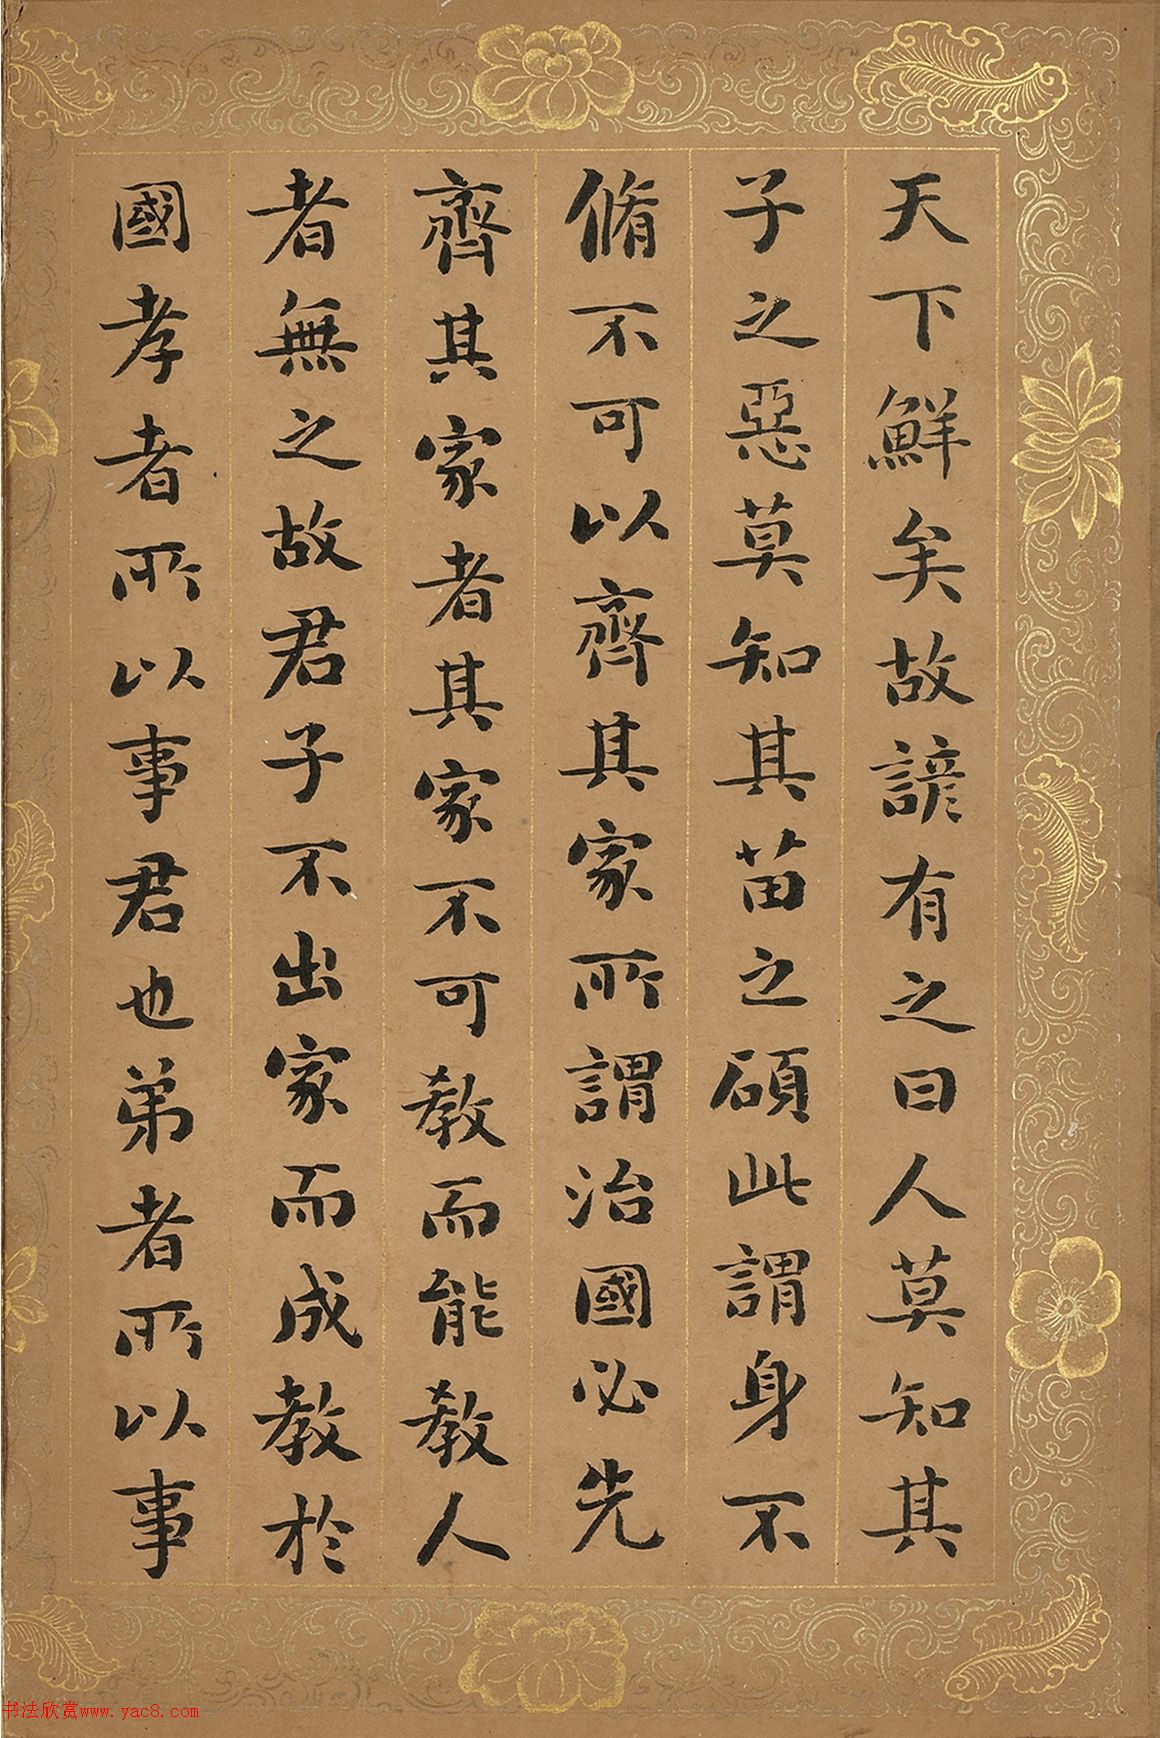 天下鮮矣故諺有之曰人莫知其
子之惡莫知其苗之碩此謂身不
脩不可以齊其家所謂治國必先
齊其家者其家不可教而能教人
者無之故君子不出家而成教於
國孝者所以事君也弟者所以事
书法欣赏www.yac8.com